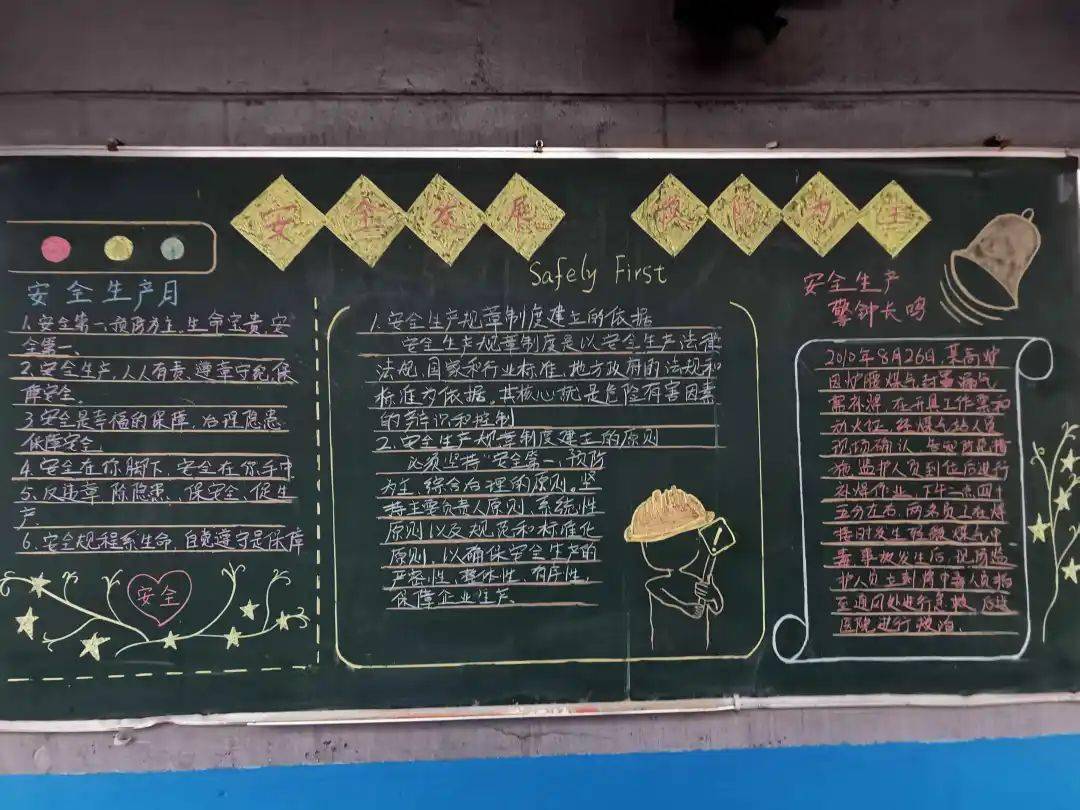 安全发展 预防为主
Safely First
安全生产月
1.安全第一预防为主,生命宝贵,安
全第一、
2.安全生产,人人有责,遵章守纪,保
障安全。
3.安全是幸福的保障,治理隐患
保障安全。
4.安全在你脚下,安全在你手中
5.反违章 除隐患、保安全、促生
产
6.安全规程系生命,自觉遵守是保障
安全
1.安全生产规章制度建立的依据
安全生产规章制度是以安全生产法律
法规、国家和行业标准、地方政府的法规和
标准为依据。其核心就是危险有害因素
的辨识和控制
2.安全生产规章制度建立的原则
必须坚持“安全第一、预防
为主、综合治理的原则。坚
持主要负责人原则、系统性
原则以及规范和标准化
原则,以确保安全生产的
严密性、整体性、有序性,
保障企业生产
安全生产
警钟长鸣
2010年8月26日,某高炉
因炉 煤气封罩漏气,
需补焊,在开具工作票和
动火证,经煤气站人员
现场确认、告知 防范措
施监护人员到位后进行
补焊作业,下午二点四十
五分左右,两名员工在焊
接时发生 煤气中
毒,事故发生后,现场监
护人员立刻将中毒人员移
至通风处进行急救,后送
医院进行救治。